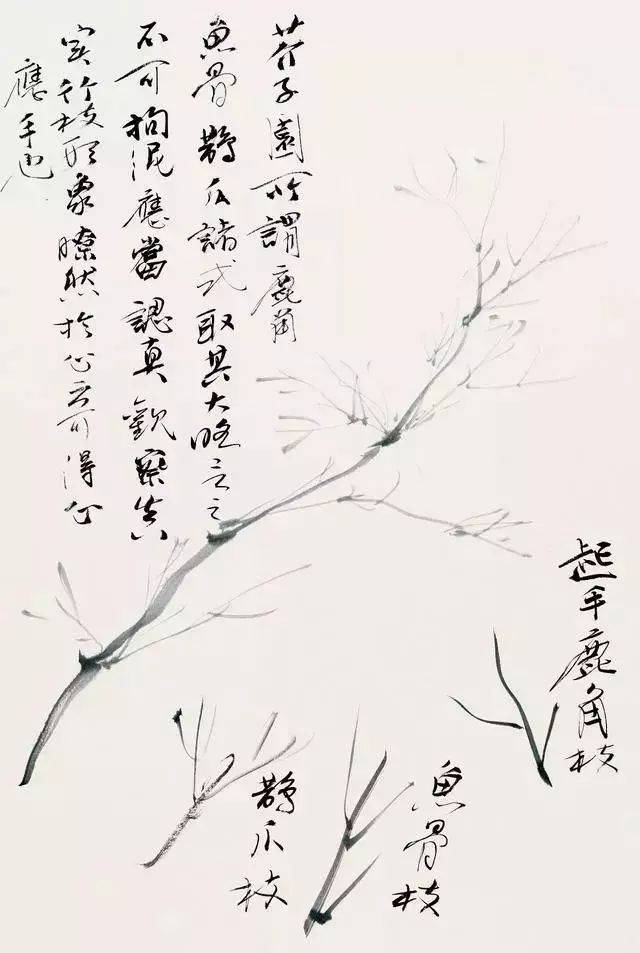 芥子園所謂鹿角
魚骨鵲爪諸式取其大略言之
不可拘泥應當認真觀察真
实竹枝形象瞭然於心方可得心
應手也
起手鹿角枝
魚骨枝
鵲爪枝